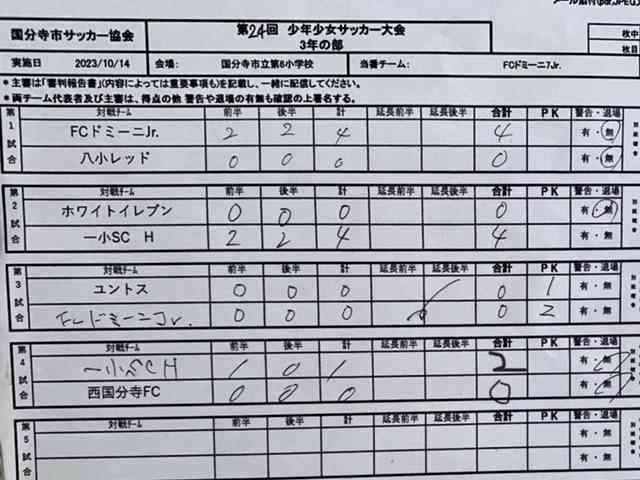 メール添付(pdf,JPEG)
国分寺市サッカー協会 第24回 少年少女サッカー大会 枚中
3年の部 枚目
実施日 2023/10/14 会場: 国分寺市立第6小学校 当番チーム: FCドミーニ7Jr.
*主審は「審判報告書」(内容によっては重要事項も)を記載し、一緒に配信してください。
*両チーム代表者及び主審は、得点の他 警告や退場の有無も確認の上署名する。
第1試合 対戦チーム 前半 後半 計 延長前半 延長後半 合計 PK 警告・退場
FCドミーニJr. 2 2 4 4 有・無
八小レッド 0 0 0 0 有・無
第2試合 対戦チーム 前半 後半 計 延長前半 延長後半 合計 PK 警告・退場
ホワイトイレブン 0 0 0 0 有・無
一小SC H 2 2 4 4 有・無
第3試合 対戦チーム 前半 後半 計 延長前半 延長後半 合計 PK 警告・退場
ユントス 0 0 0 0 1 有・無
FCドミーニJr. 0 0 0 0 2 有・無
第4試合 対戦チーム 前半 後半 計 延長前半 延長後半 合計 PK 警告・退場
一小SCH 1 0 1 2 有・無
西国分寺FC 0 0 0 0 有・無
第5試合 対戦チーム 前半 後半 計 延長前半 延長後半 合計 PK 警告・退場
有・無
有・無